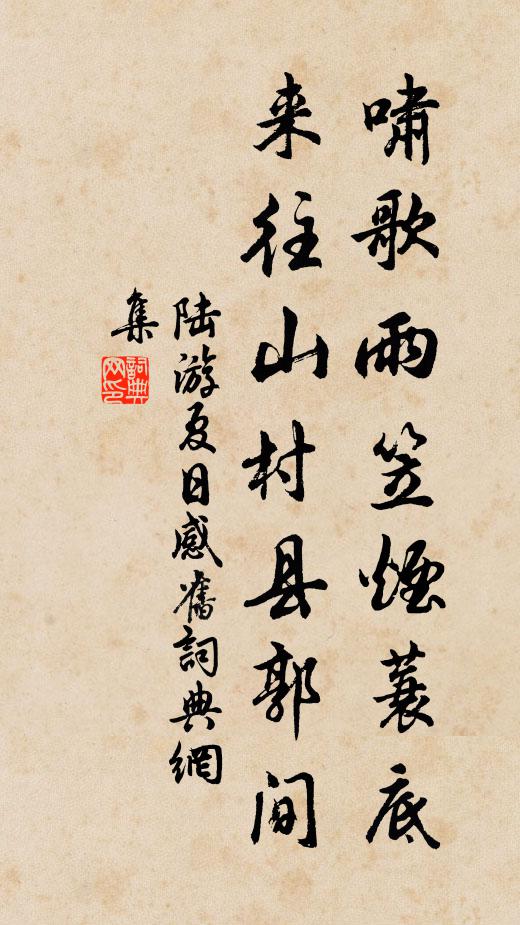 啸歌雨笠烟蓑底
来往山村县郭间
陆游夏日感旧詞典網
集
詞典
网印